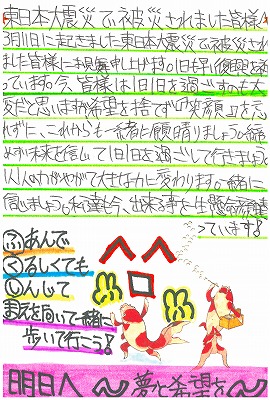 東日本大震災で被災されました皆様へ
3月11日に起きました東日本大震災で被災され
ました皆様にお見舞申し上げます。1日も早い復興を祈
っています。今、皆様は1日1日を過ごすのも大
変だと思いますが希望を捨てず『笑顔』を忘
れずに、これからも一緒に頑晴りましょう。諦
めずに未来を信じて1日1日を過ごして行きましょう
1人1人のわがやがて大きな力に変わります。一緒に
信じましょう。私達も今、出来る事を一生懸命頑張
っています!
ふあんで
くるしくても
しんじて
まえを向いて一緒に
歩いて行こう!
明日へ〜夢と希望を〜